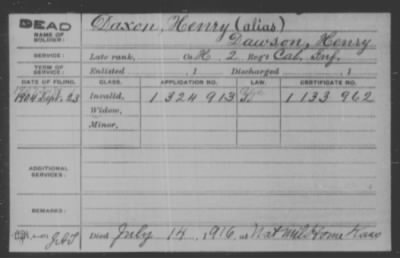 DEAD
NAME OF SOLDIER: Daxon, Henry (alias)
Dawson, Henry
SERVICE: Late rank, Co. H, 2 Reg't Cal. Inf.
TERM OF SERVICE: Enlisted , 1 Discharged , 1
DATE OF FILING. CLASS. APPLICATION NO. CERTIFICATE NO.
1904 Sept. 23 Invalid, 1 324 913 1 133 962
Widow,
Minor,
ADDITIONAL SERVICES:
REMARKS:
Died July 14, 1916 at Nat Mil Home Kans